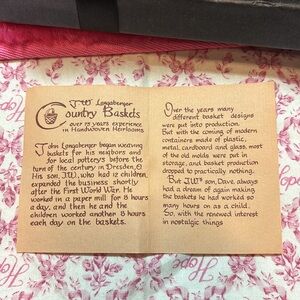 JW Longaberger
Country Baskets
over 75 years experience
in Handwoven Heirlooms
John Longaberger began weaving
baskets for his neighbors and
for local pottery's before the
turn of the century in Dresden, O
His son, J.W., who had 12 children,
expanded the business shortly
after the First World War. He
worked in a paper mill for 8 hours
a day, and then he and the
children worked another 8 hours
each day on the baskets.
Over the years many
different basket designs
were put into production.
But with the coming of modern
containers made of plastic,
metal, cardboard and glass, most
of the old molds were put in
storage, and basket production
dropped to practically nothing.
But J.W.'s son, Dave, always
had a dream of again making
the baskets he had worked so
many hours on as a child.
So, with the renewed interest
in nostalgic things
Hope